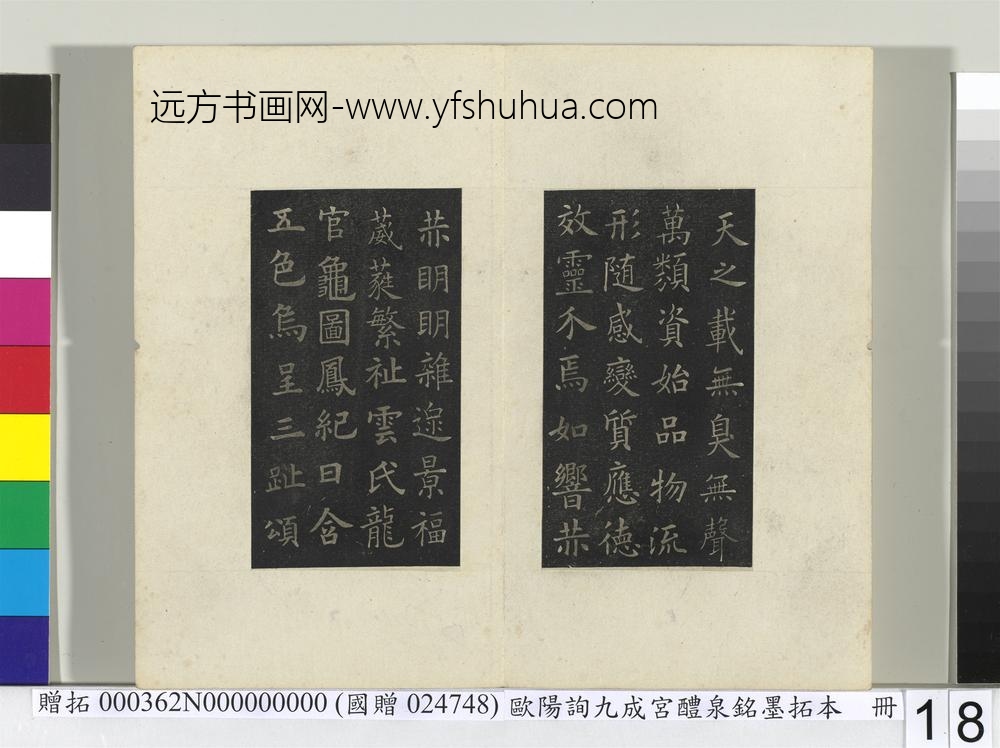 远方书画网-www.yfshuhua.com
天之載無臭無聲
萬類資始品物流
形隨感變質應德
效靈介焉如響赫
赫明明雜遝景福
葳蕤繁祉雲氏龍
官龜圖鳳紀日含
五色烏呈三趾頌
贈拓 000362N000000000 (國贈 024748) 歐陽詢九成宮醴泉銘墨拓本 冊
18